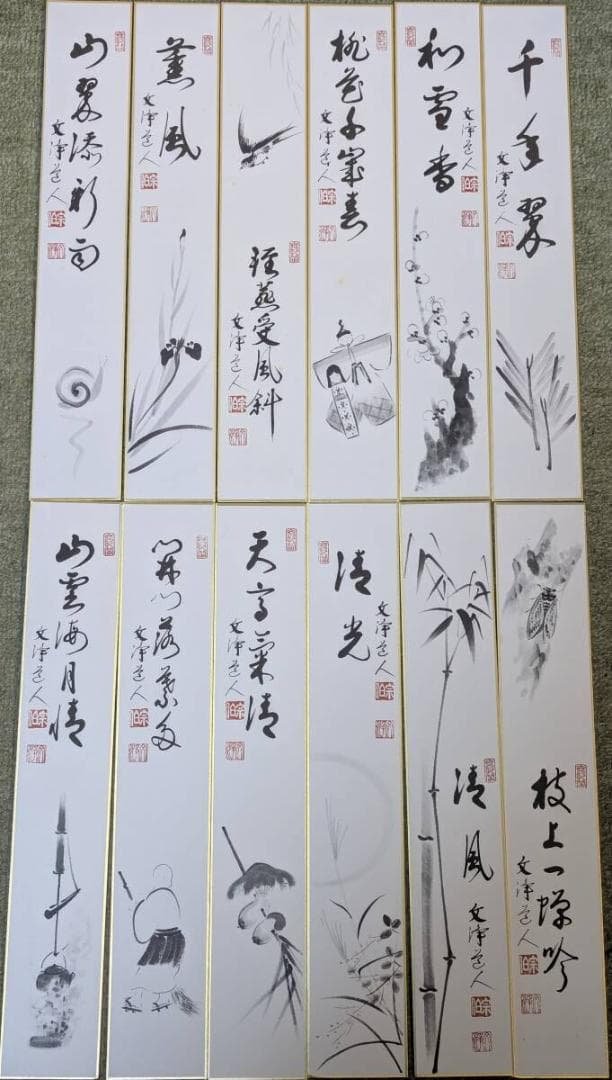 千年翠
文浄道人
和雪香
文浄道人
桃花千歳春
文浄道人
軽燕受風斜
文浄道人
薫風
文浄道人
山翠添新雨
文浄道人
枝上一蝉吟
文浄道人
清風
文浄道人
清光
文浄道人
天高氣清
文浄道人
開門落葉多
文浄道人
山雲海月情
文浄道人